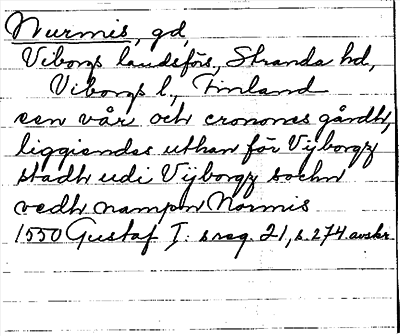 Nurmis, gd,
Viborgs landsförs., Stranda hd,
Viborgs l., Finland
een vår och cronones gårdh,
liggiendes uthan för Vijborgz
stadh udi Vijborgz sochn
vedh nampn Normis
1550 Gustaf I: s reg. 21, s. 274 avskr.